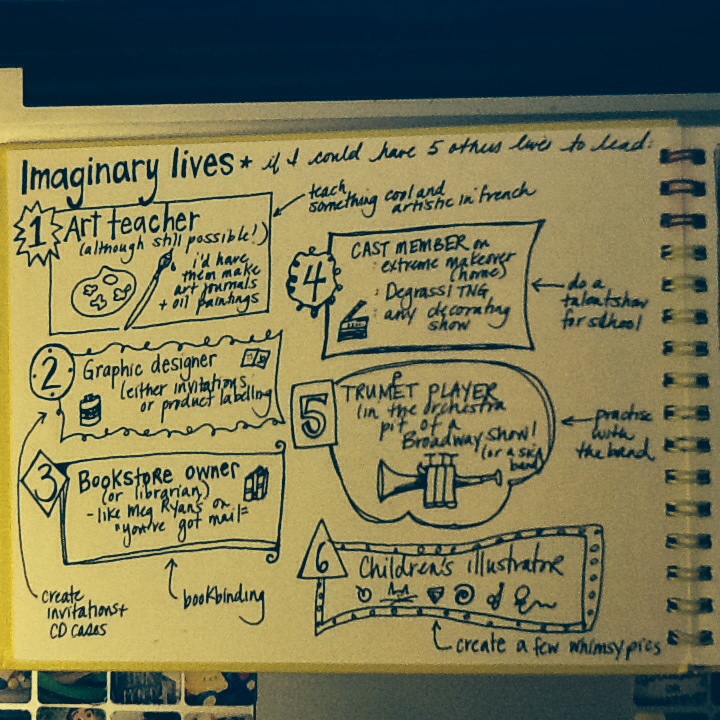 Imaginary lives * if I could have 5 others lives to lead:
1 Art teacher
(although still possible!)
i'd have
them make
art journals
+ oil paintings
teach
something cool and
artistic in french
2 Graphic designer
(either invitations
or product labeling
create
invitations +
CD cases
3 Bookstore owner
(or librarian)
- like Meg Ryan's on
"you've got mail"
bookbinding
4 CAST MEMBER on
: extreme makeover
(home)
: Degrassi TNG
: any decorating
show
do a
talent show
for school
5 TRUMPET PLAYER
(in the orchestra
pit of a
Broadway show!
(or a ska
band)
practise
with
the band
6 Children's illustrator
create a few whimsy pics